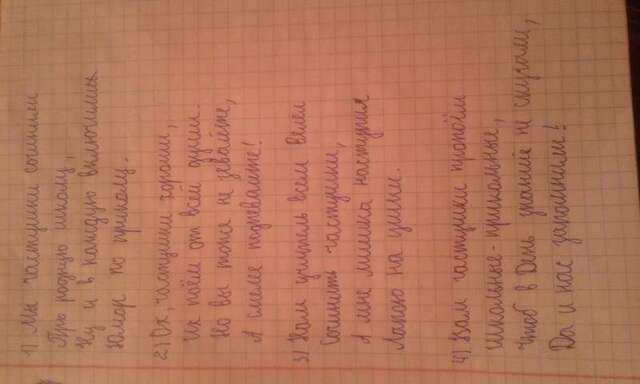 1) Мы частушки сочинили
Про родную школу,
Ну и в каждую включили
Юмор по приколу.
2) Ох, частушки хороши,
Их поём от всей души.
Но вы тоже не зевайте,
А смело подпевайте!
3) Нам учитель всем велел
Сочинить частушки,
А мне мишка наступил
Лапою на ушки.
4) Вам частушки пропоём
Школьные-прикольные,
Чтоб в День знаний не скучали,
Да и нас запомнили!